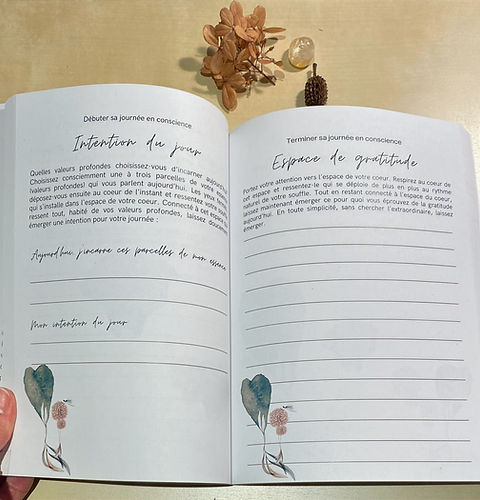 Débuter sa journée en conscience
Intention du jour
Quelles valeurs profondes choisissez-vous d'incarner aujourd'hui
Choisissez consciemment une à trois parcelles de votre essence
valeurs profondes) qui vous parlent aujourd'hui. Les yeux fermés
déposez-vous ensuite au coeur de l'instant et ressentez votre
qui s'installe dans l'espace de votre coeur. Connecté à cet espace
ressent tout, habité de vos valeurs profondes, laissez doucement
émerger une intention pour votre journée :
Aujourd'hui, j'incarne ces parcelles de mon essence
Mon intention du jour
Terminer sa journée en conscience
Espace de gratitude
Portez votre attention vers l'espace de votre coeur. Respirez au coeur de
cet espace et ressentez-le qui se déploie de plus en plus au rythme
naturel de votre souffle. Tout en restant connecté à l'espace du coeur,
laissez maintenant émerger ce pour quoi vous éprouvez de la gratitude
aujourd'hui. En toute simplicité, sans chercher l'extraordinaire, laissez
émerger.